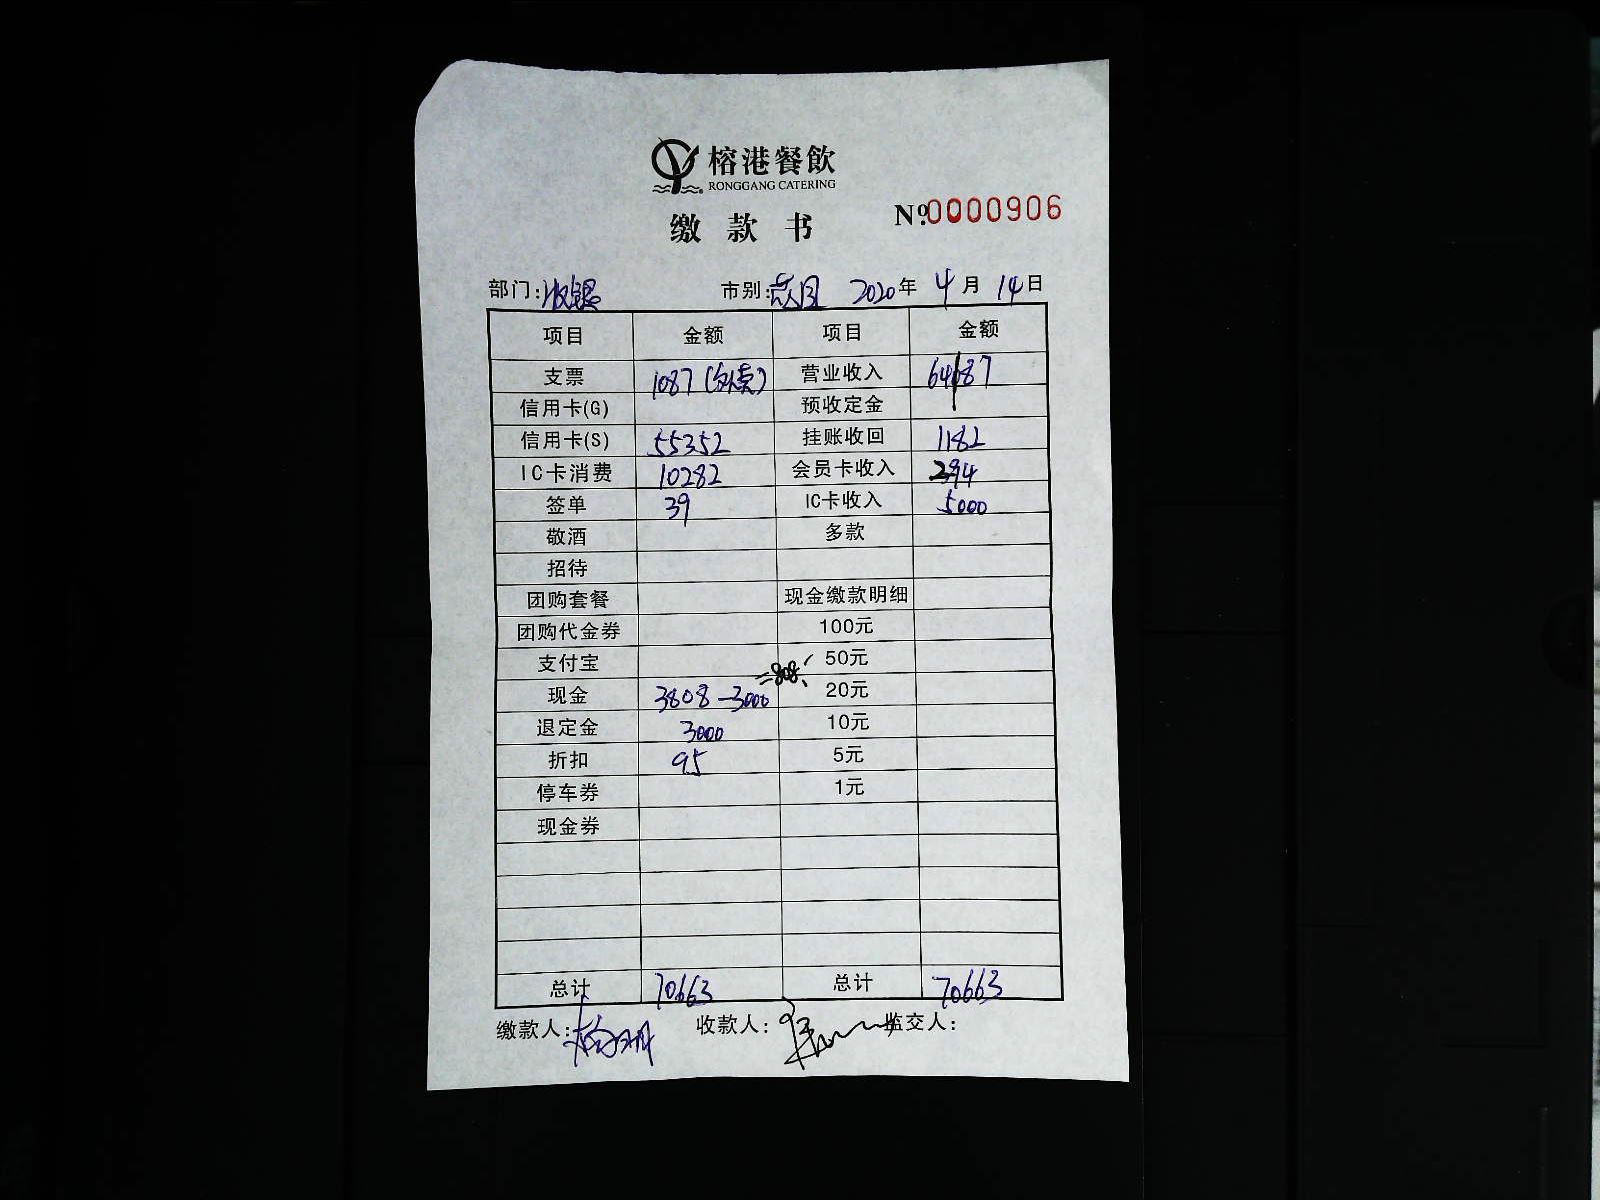 榕港餐飲
RONGGANG CATERING
缴款书
№0000906
部门:收银 市别: 2020年 4月 14日
项目 金额 项目 金额
支票 1087 (外卖) 营业收入 64187
信用卡(G) 预收定金
信用卡(S) 55352 挂账收回 1182
IC卡消费 10282 会员卡收入 294
签单 39 IC卡收入 5000
敬酒 多款
招待
团购套餐 现金缴款明细
团购代金券 100元
支付宝 50元
现金 3808-3000=808 20元
退定金 3000 10元
折扣 95 5元
停车券 1元
现金券
总计 70663 总计 70663
缴款人: 收款人: 监交人: